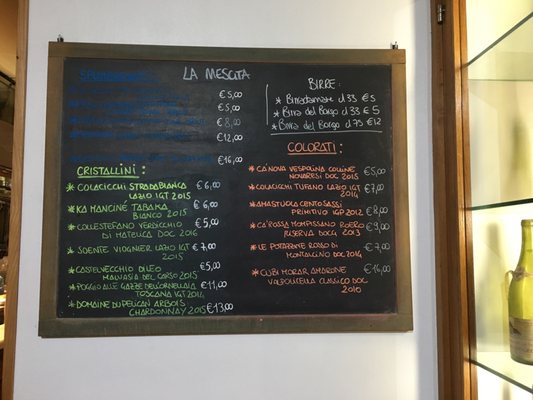 LA MESCITA
€5,00
€5,00
€8,00
€12,00
€16,00
CRISTALLINI:
* COLACICCHI STRADABIANCA €6,00
LAZIO IGT 2015
* KA MANCINÉ TABAKA €6,00
BIANCO 2015
* COLLESTEFANO VERDICCHIO €5,00
DI MATELICA DOC 2016
* SOENTE VIOGNIER LAZIO IGT €7,00
2015
* CASTELVECCHIO DILEO €5,00
MALVASIA DEL CARSO 2015
* POGGIO ALLE GAZZE DELL'ORNELLAIA €11,00
TOSCANA IGT 2014
* DOMAINE DU PELICAN ARBOIS
CHARDONNAY 2015 €13,00
BIRRE:
* Birradamare cl 33 €5
* Birra del Borgo cl 33 €5
* Birra del Borgo cl 75 €12
COLORATI:
* CA'NOVA VESPOLINA COLLINE €5,00
NOVARESI DOC 2015
* COLACICCHI TUFANO LAZIO IGT €7,00
2014
* AMASTUOLA CENTOSASSI €8,00
PRIMITIVO IGP 2012
* CA'ROSSA MOMPISSANO ROERO €9,00
RISERVA DOCG 2013
* LE POTAZZINE ROSSO DI €7,00
MONTALCINO DOC 2014
* CUBI MORAR AMARONE €16,00
VALPOLICELLA CLASSICO DOC
2010